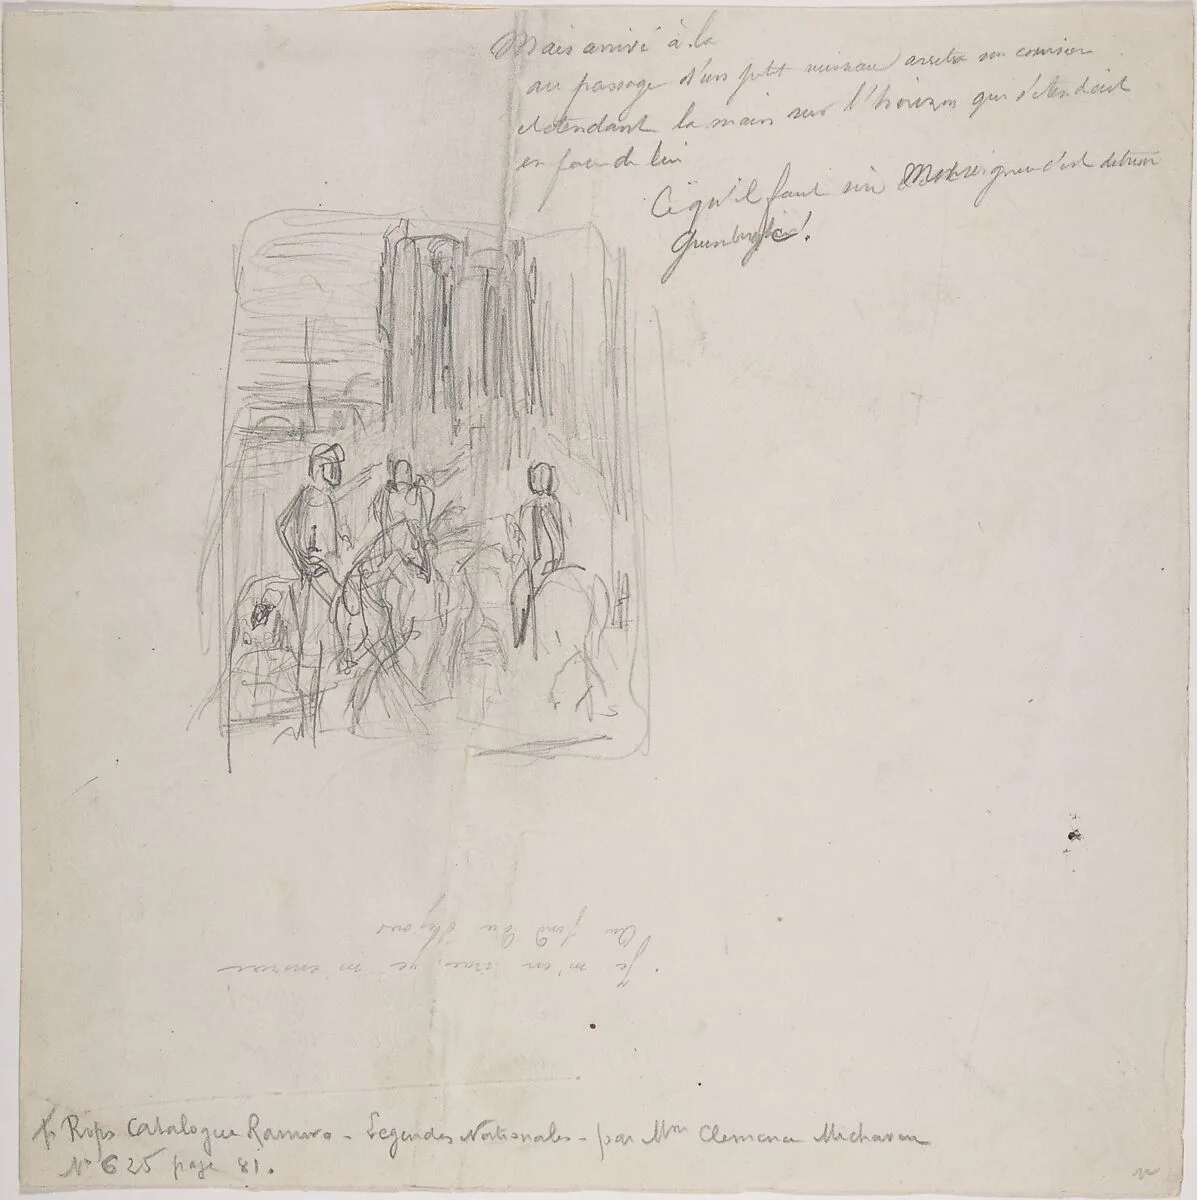 Mais arrivé à la
au passage d'un petit ruisseau arreta son coursier
et étendant la main sur l'horizon qui s'étendait
en face de lui
Ce qu'il faut Monseigneur c'est
Je m'en irai, je m'en irai
Au fond du
Rops Catalogue Ramiro - Légendes Nationales - par Mme Clémence Michaeux
N° 625 page 81.